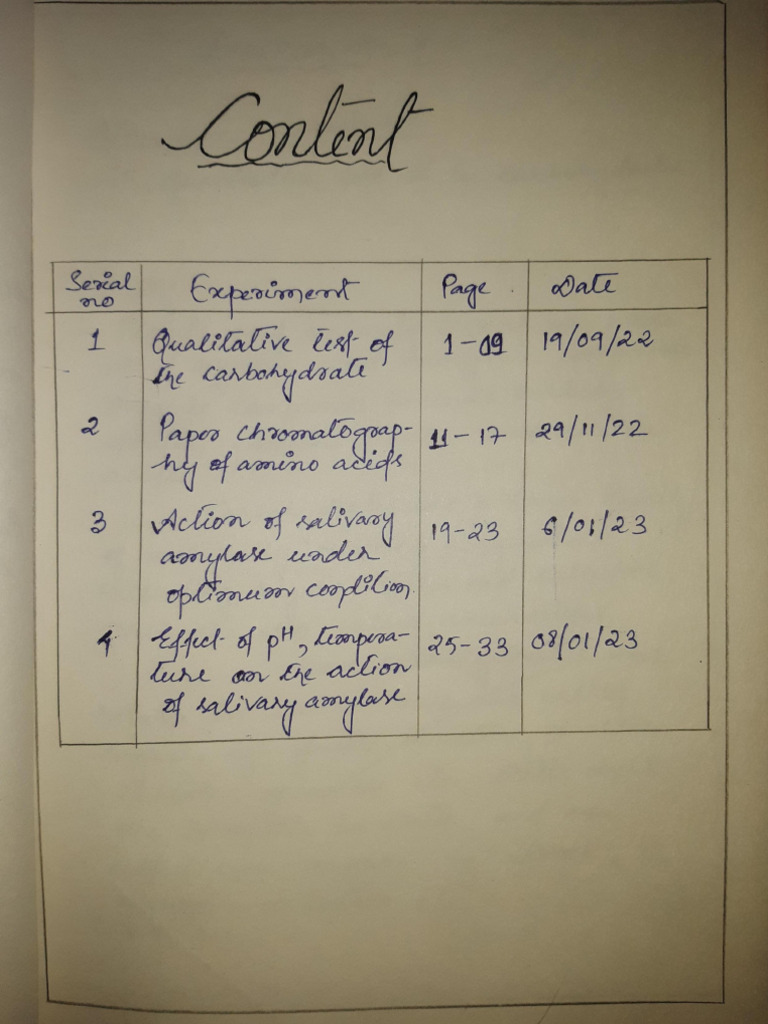 Content
Serial no Experiment Page Date
1 Qualitative test of 1-09 19/09/22
the carbohydrate
2 Paper chromatograp- 11-17 29/11/22
hy of amino acids
3 Action of salivary 19-23 6/01/23
amylase under
optimum condition.
4 Effect of pH, tempera- 25-33 08/01/23
ture on the action
of salivary amylase